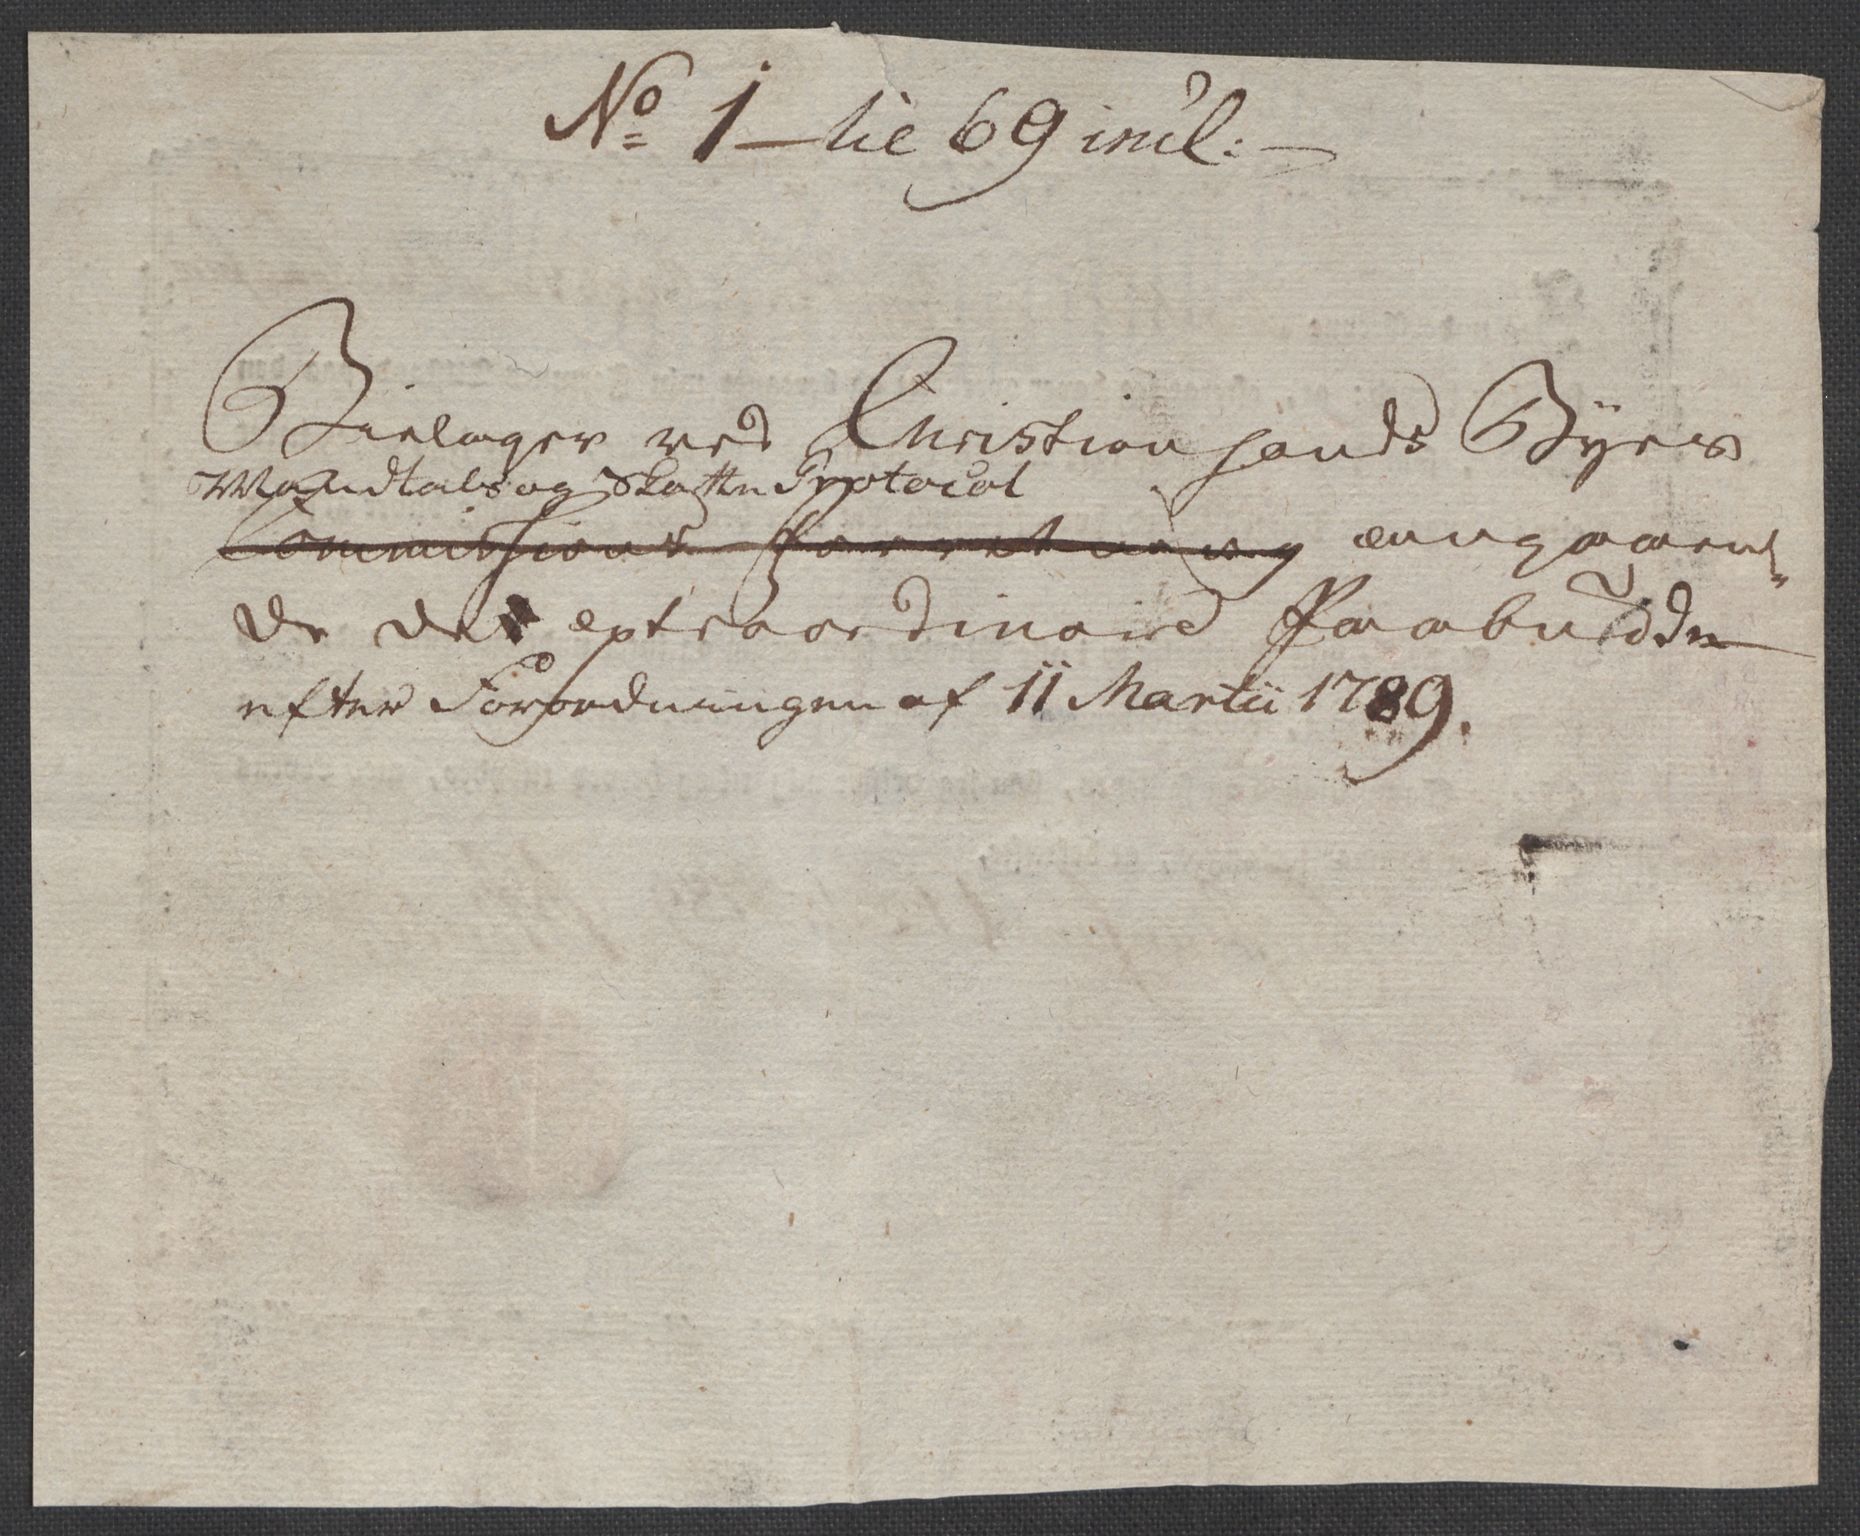 No 1 – tie 69 incl: –
Bielager ved Christiansands Byes
Mandtals og Skatte Protocol
Commissions Forretning angaaen„
de det extraordinaire Paabud den
efter Forordningen af 11 Martii 1789.